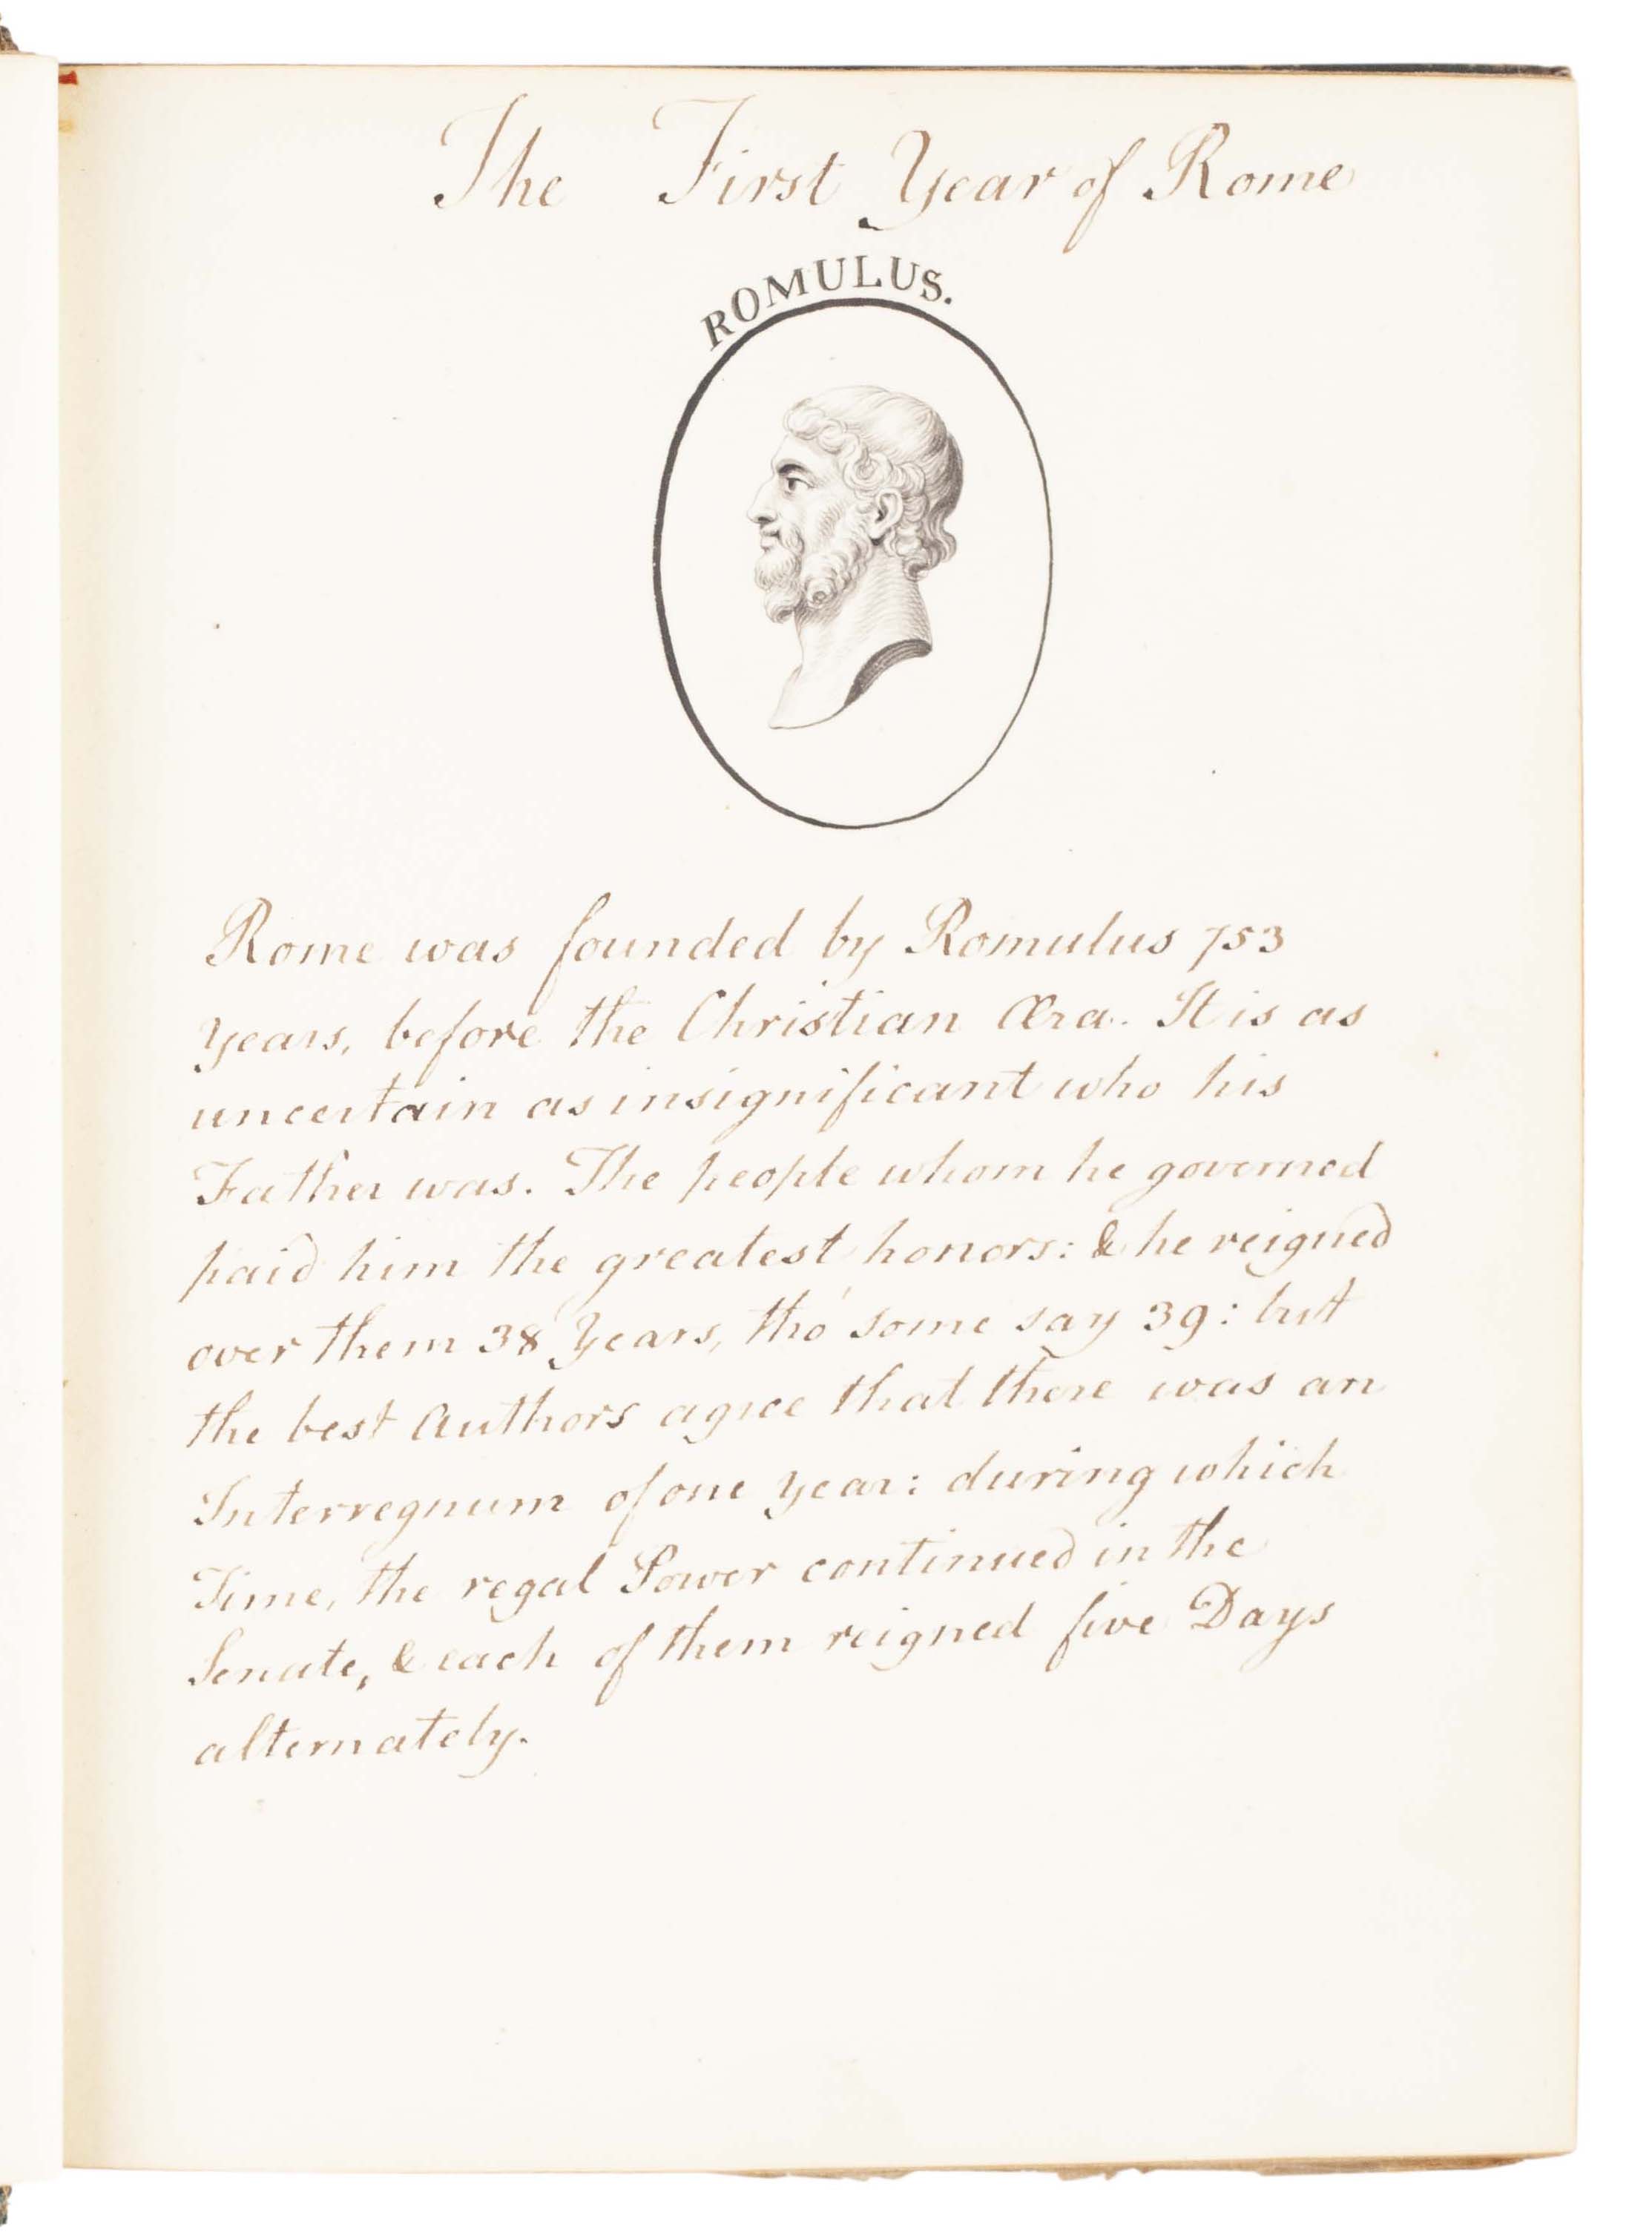 The First Year of Rome
ROMULUS.
Rome was founded by Romulus 753
Years, before the Christian Æra. It is as
uncertain as insignificant who his
Father was. The people whom he governed
paid him the greatest honors: & he reigned
over them 38 Years, tho' some say 39: but
the best Authors agree that there was an
Interregnum of one Year: during which
Time, the regal Power continued in the
Senate, & each of them reigned five Days
alternately.